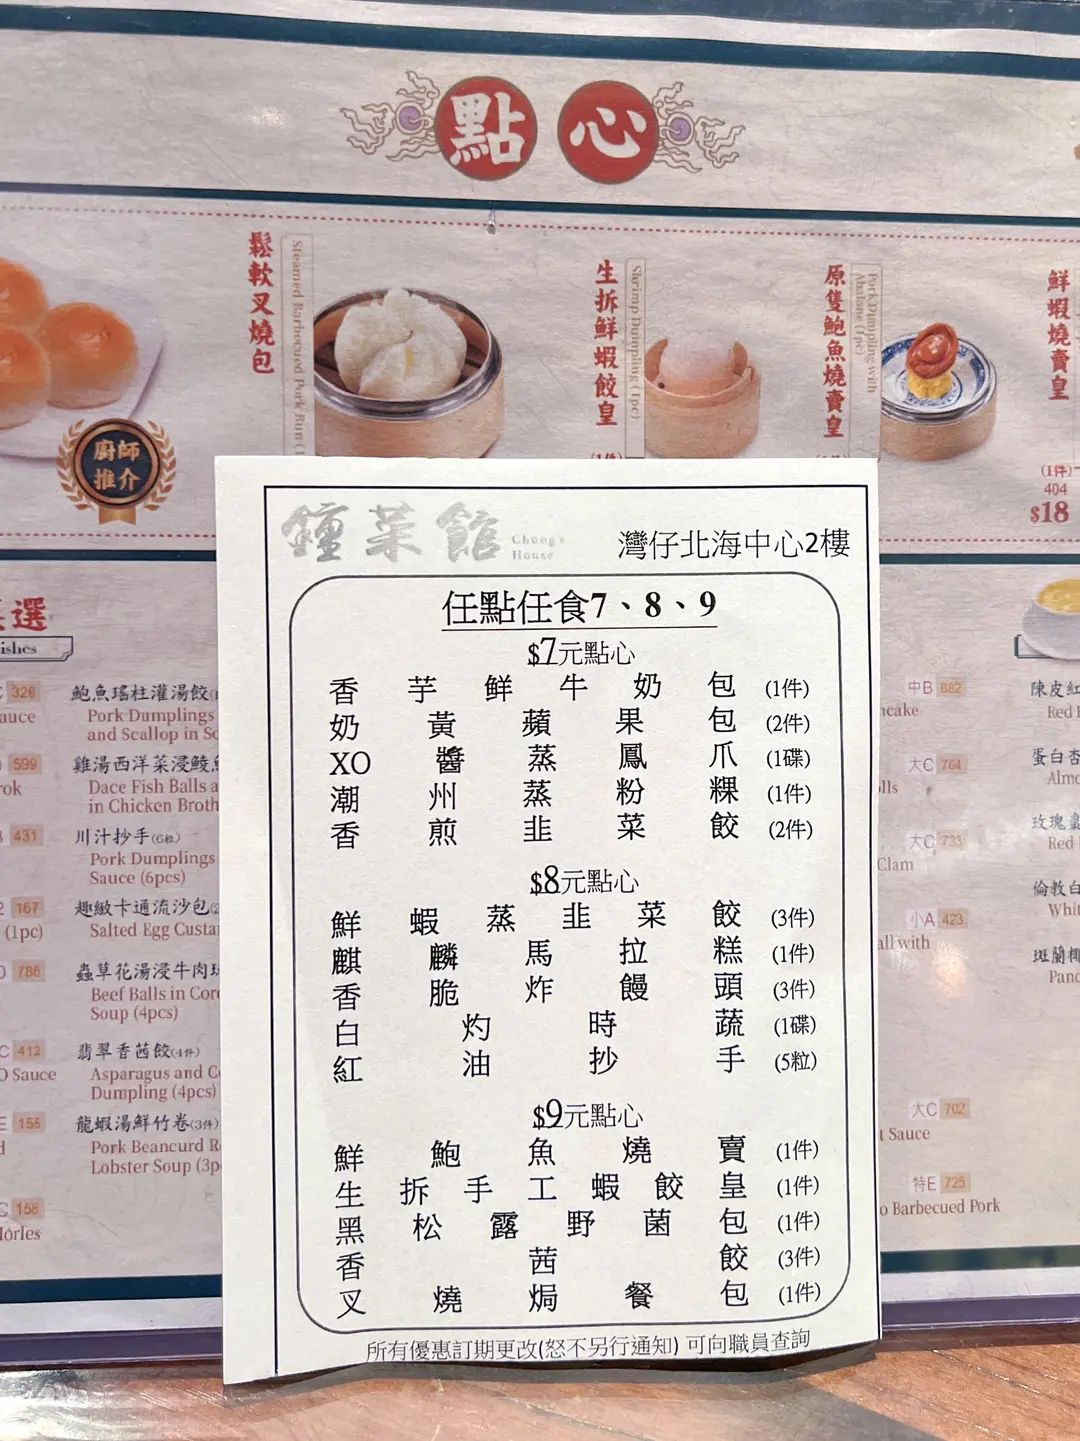 點心
鬆軟叉燒包
Steamed Barbecued Pork Bun
生拆鮮蝦餃皇
Shrimp Dumpling (1pc)
原隻鮑魚燒賣皇
Pork Dumpling with
Abalone (1pc)
鮮蝦燒賣皇
(1件)
404
$18
廚師
推介
鐘菜館
Chung's
House
灣仔北海中心2樓
任點任食7、8、9
$7元點心
香芋鮮牛奶包 (1件)
奶黃蘋果包 (2件)
XO醬蒸鳳爪 (1碟)
潮州蒸粉粿 (1件)
香煎韭菜餃 (2件)
$8元點心
鮮蝦蒸韭菜餃 (3件)
麒麟馬拉糕 (1件)
香脆炸饅頭 (3件)
白灼時蔬 (1碟)
紅油抄手 (5粒)
$9元點心
鮮鮑魚燒賣 (1件)
生拆手工蝦餃皇 (1件)
黑松露野菌包 (1件)
香茜餃 (3件)
叉燒焗餐包 (1件)
所有優惠訂期更改(怒不另行通知) 可向職員查詢
選
ishes
C 326
auce
599
rok
431
167
(1pc)
786
C 412
O Sauce
E 155
C 158
Morles
鮑魚瑤柱灌湯餃
Pork Dumplings
and Scallop in
雞湯西洋菜浸鯪
Dace Fish Balls
in Chicken Broth
川汁抄手(6粒)
Pork Dumplings
Sauce (6pcs)
趣緻卡通流沙包
Salted Egg
蟲草花湯浸牛肉
Beef Balls in
Soup (4pcs)
翡翠香茜餃(4件)
Asparagus and
Dumpling (4pcs)
龍蝦湯鮮竹卷(3件)
Pork Beancurd
Lobster Soup
中B 882
ncake
大C 764
lls
大C 733
Clam
小A 423
all with
大C 702
t Sauce
特E 725
o Barbecued Pork
陳皮紅
Red
蛋白杏
玫瑰
Red
倫教白
斑蘭椰